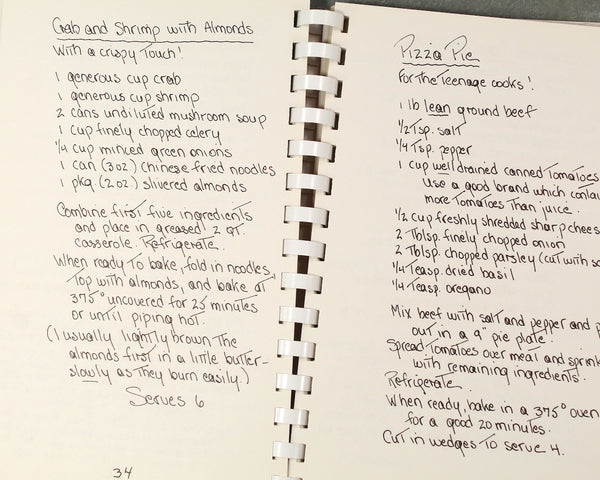 Crab and Shrimp with Almonds
With a crispy Touch!
1 generous cup crab
1 generous cup shrimp
2 cans undiluted mushroom soup
1 cup finely chopped celery
1/4 cup minced green onions
1 can (3 oz.) chinese fried noodles
1 pkg. (2 oz.) slivered almonds
Combine first five ingredients
and place in greased 2 QT.
casserole. Refrigerate.
When ready to bake, fold in noodles,
Top with almonds, and bake at
375° uncovered for 25 minutes
or until piping hot.
(I usually lightly brown the
almonds first in a little butter-
slowly as they burn easily.)
Serves 6
34
Pizza Pie
For the Teenage cooks!
1 lb lean ground beef
1/2 Tsp. salt
1/4 Tsp. pepper
1 cup well drained canned Tomatoes
Use a good brand which
more Tomatoes Than juice.
1/2 cup freshly shredded sharp
2 Tblsp. finely chopped onion
2 Tblsp. chopped parsley (cut with
1/4 Teasp. dried basil
1/4 Teasp. oregano
Mix beef with salt and pepper and
out in a 9" pie plate.
Spread Tomatoes over meat and
with remaining ingredients.
Refrigerate.
When ready, bake in a 375° oven
for a good 20 minutes.
Cut in wedges to serve 4.